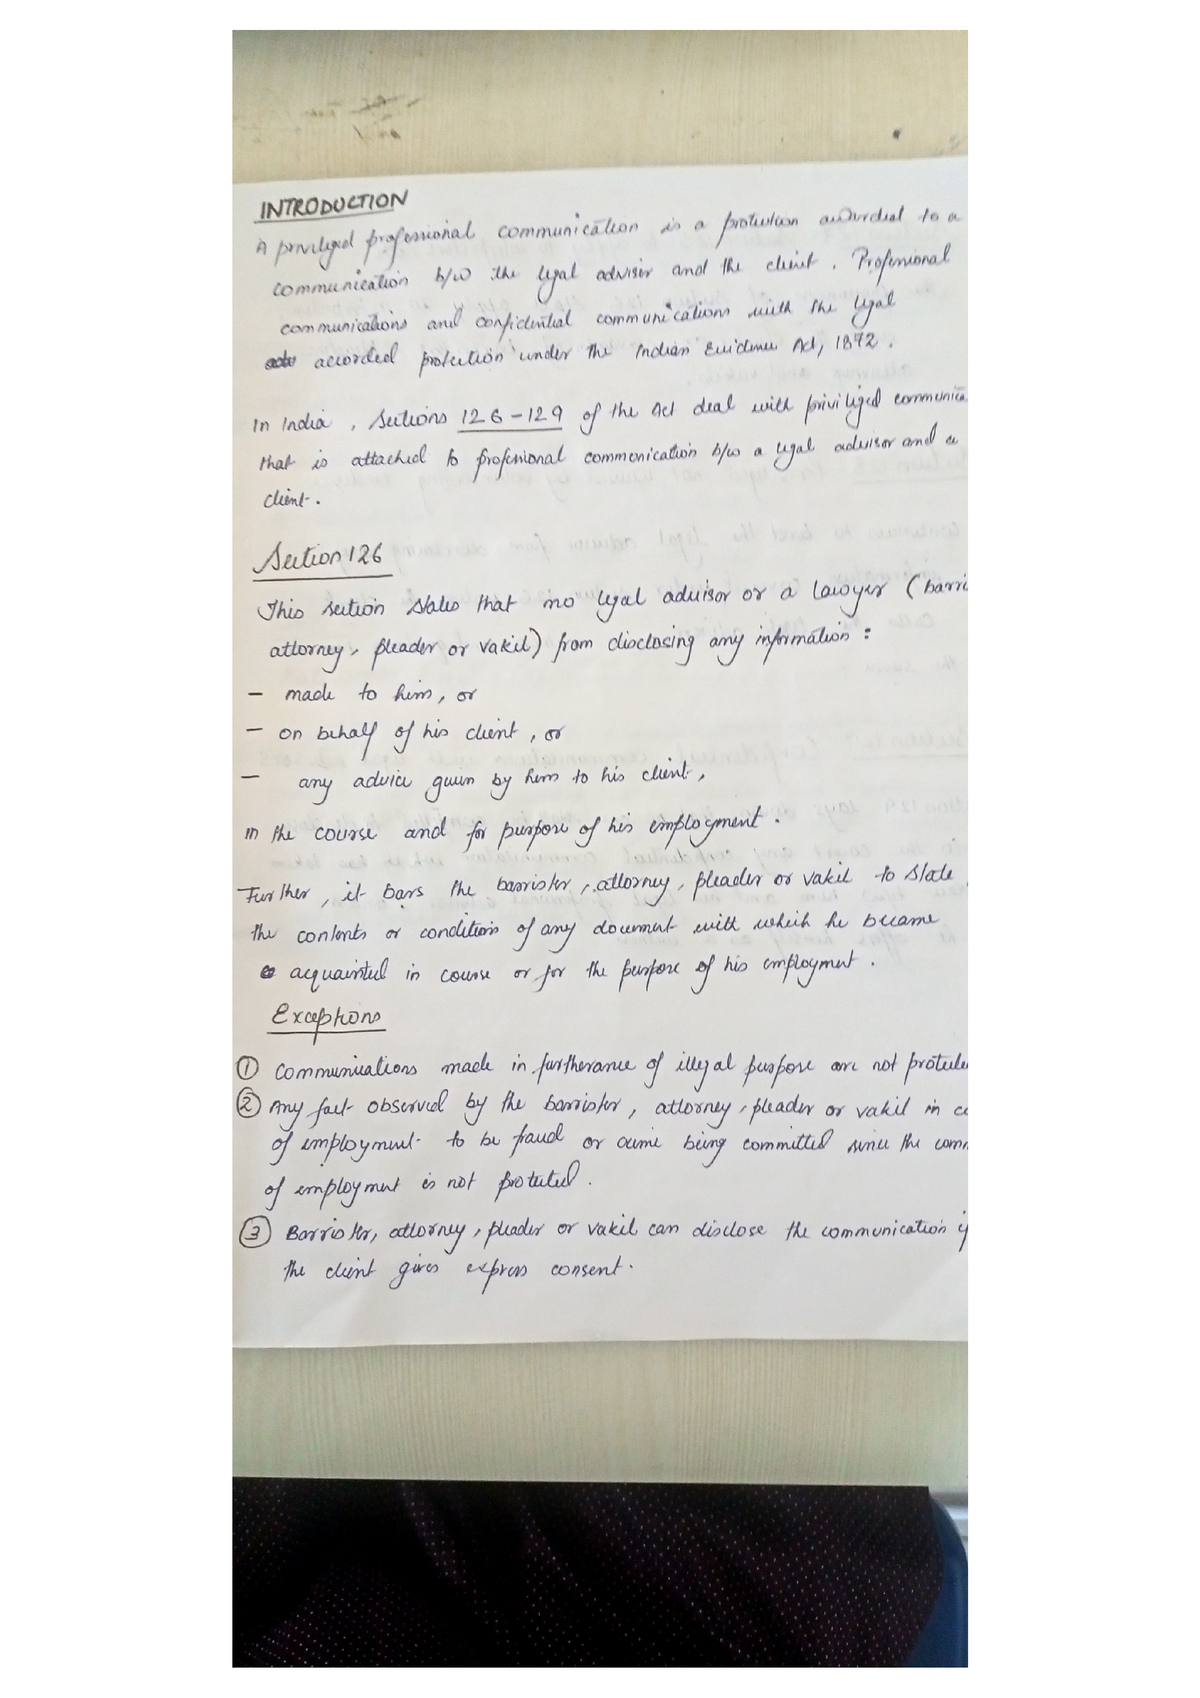 INTRODUCTION
A priviliged professional communication is a protection accorded to a
communication b/w the legal advisor and the client. Professional
communications and confidential communications with the legal
accorded protection under the Indian Evidence Act, 1872.
In India, Sections 126-129 of the Act deal with priviliged communica
that is attached to professional communication b/w a legal advisor and a
client.
Section 126
This section states that no legal advisor or a lawyer (barri
attorney, pleader or vakil) from disclosing any information:
- made to him, or
- on behalf of his client, or
- any advice given by him to his client,
in the course and for purpose of his employment.
Further, it bars the barrister, attorney, pleader or vakil to state
the contents or condition of any document with which he became
acquainted in course or for the purpose of his employment.
Exceptions
① Communications made in furtherance of illegal purpose are not protecte
② Any fact observed by the barrister, attorney, pleader or vakil in co
of employment to be fraud or crime being committed since the comm
of employment is not protected.
③ Barrister, attorney, pleader or vakil can disclose the communication if
the client gives express consent.